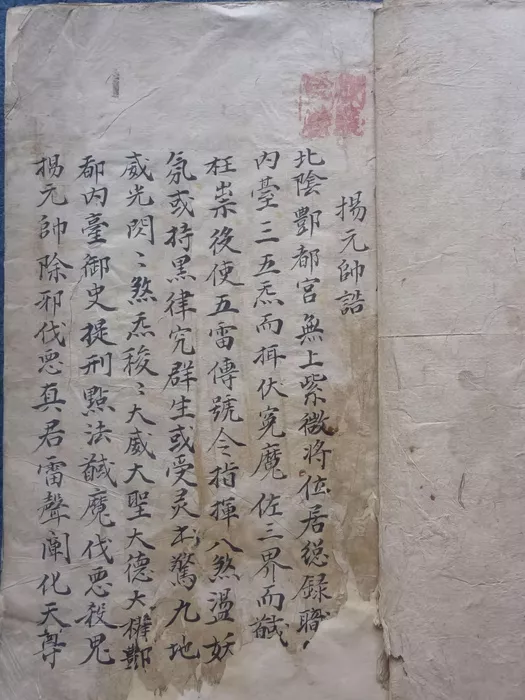 楊元帥誥
北陰酆都宮無上紫微將位居總録職八
内臺三五炁而摂伏寃魔佐三界而馘
枉祟後使五雷傳號令指揮八煞盪妖
氛或持黑律究群生或受灵书驚九地
威光閃〻煞炁稜〻大威大聖大德大權酆
都内臺御史提刑點法馘魔伐悪殺鬼
楊元帥除邪伐悪真君雷聲闡化天尊